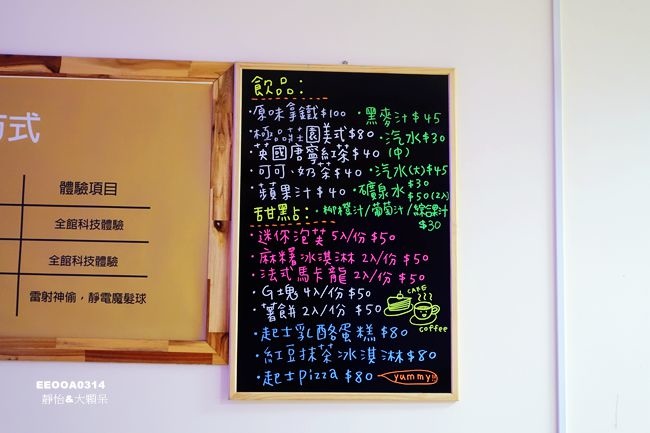 方式
體驗項目
全館科技體驗
全館科技體驗
雷射神偷，靜電魔髮球
EEOOA0314
靜怡&大顆呆
飲品：
·原味拿鐵$100 ·黑麥汁$45
·極品莊園美式$80 ·汽水$30
·英國唐寧紅茶$40 (中)
·可可、奶茶$40 ·汽水(大)$45
·蘋果汁$40 ·礦泉水$30
$50(2入)
甜點： ·柳橙汁/葡萄汁/綜合果汁
$30
·迷你泡芙 5入/份 $50
·麻糬冰淇淋 2入/份 $50
·法式馬卡龍 2入/份 $50
·G塊 4入/份 $50
·薯餅 2入/份 $50
CAFE
coffee
·起士乳酪蛋糕 $80
·紅豆抹茶冰淇淋$80
·起士pizza $80 yummy!!